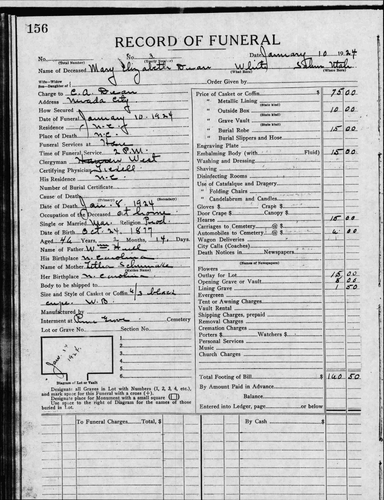 156
RECORD OF FUNERAL
No. Date January 10 1924
(Total Number) (Yearly Number)
Name of Deceased Mary Elizabeth Dean White
(What Race) (Where Born)
Order Given by
Charge to C. A. Dean
Address Nevada City
How Secured
Date of Funeral January 10-1924
Residence N.C.
Place of Death N.C.
Funeral Services at
Time of Funeral Service 2 P.M.
Clergyman West
Certifying Physician
His Residence N.C.
Number of Burial Certificate
Cause of Death
Date of Death Jan. 8, 1924
Occupation of the Deceased at home
Single or Married Religion Prot.
Date of Birth Oct. 24, 1877
Aged 46 Years, 2 Months, 14 Days.
Name of Father Wm
His Birthplace N. Carolina
Name of Mother
(Maiden Name)
Her Birthplace N. Carolina
Body to be shipped to
Size and Style of Casket or Coffin 6/3 black
W.B.
Manufactured by
Interment at Pine Grove Cemetery
Lot or Grave No. Section No.
Diagram of Lot or Vault
Designate all Graves in Lot with Numbers (1, 2, 3, 4, etc.),
and mark space for this Funeral with a cross (+).
Designate place for Monument with a small square
Use space to the right of Diagram for the names of those
buried in Lot.
Price of Casket or Coffin $ 75 00
" Metallic Lining
" Outside Box 10 00
" Grave Vault
" Burial Robe 15 00
" Burial Slippers and Hose
Engraving Plate
Embalming Body (with Fluid) 15 00
Washing and Dressing
Shaving
Disinfecting Rooms
Use of Catafalque and Drapery
" Folding Chairs
" Candelabrum and Candles
Gloves $ Crape $
Door Crape $ Canopy $
Hearse 15 00
Carriages to Cemetery @ $
Automobiles to Cemetery @ $ 00
Wagon Deliveries
City Calls (Coaches)
Death Notices in Newspapers
(Names of Newspapers)
Flowers
Outlay for Lot 15 00
Opening Grave or Vault 8 00
Lining Grave 1 50
Evergreen
Tent or Awning Charges
Vault Rental
Shipping Charges, prepaid
Removal Charges
Cremation Charges
Porters $ Watchers $
Personal Services
Music
Church Charges
Total Footing of Bill $ 160 50
By Amount Paid in Advance
Balance
Entered into Ledger, page or below $
To Funeral Charges. Total $
By Cash $